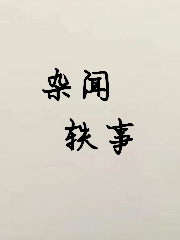 杂闻
轶事